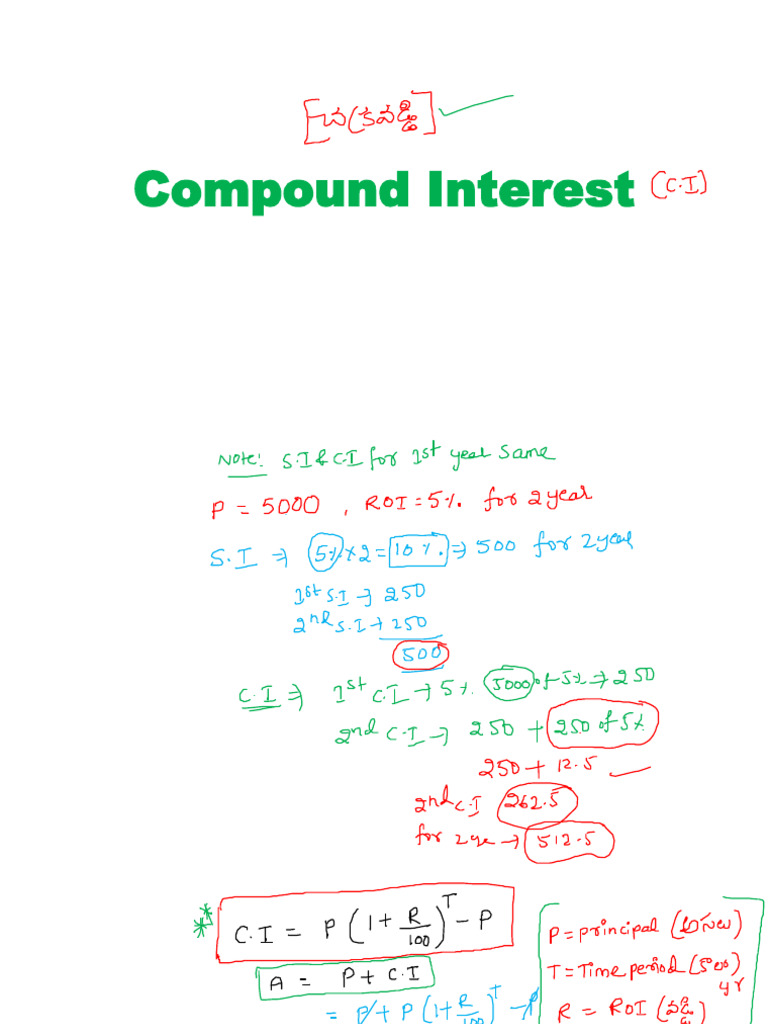 [చక్రవడ్డి]
Compound Interest (C.I)
Note: S.I & C.I for 1st year same
P = 5000 , ROI = 5%. for 2 year
S.I ⇒ 5% × 2 = 10%. ⇒ 500 for 2 year
1st S.I → 250
2nd S.I → 250
500
C.I ⇒ 1st C.I → 5%. 5000 of 5% → 250
2nd C.I → 250 + 250 of 5%
250 + 12.5
2nd C.I 262.5
for 2 ye → 512.5
C.I = P(1 + R/100)^T - P
A = P + C.I
= P + P(1 + R/100)^T - P
P = principal (అసలు)
T = Time period (కాలం)
yr
R = ROI (వడ్డీ